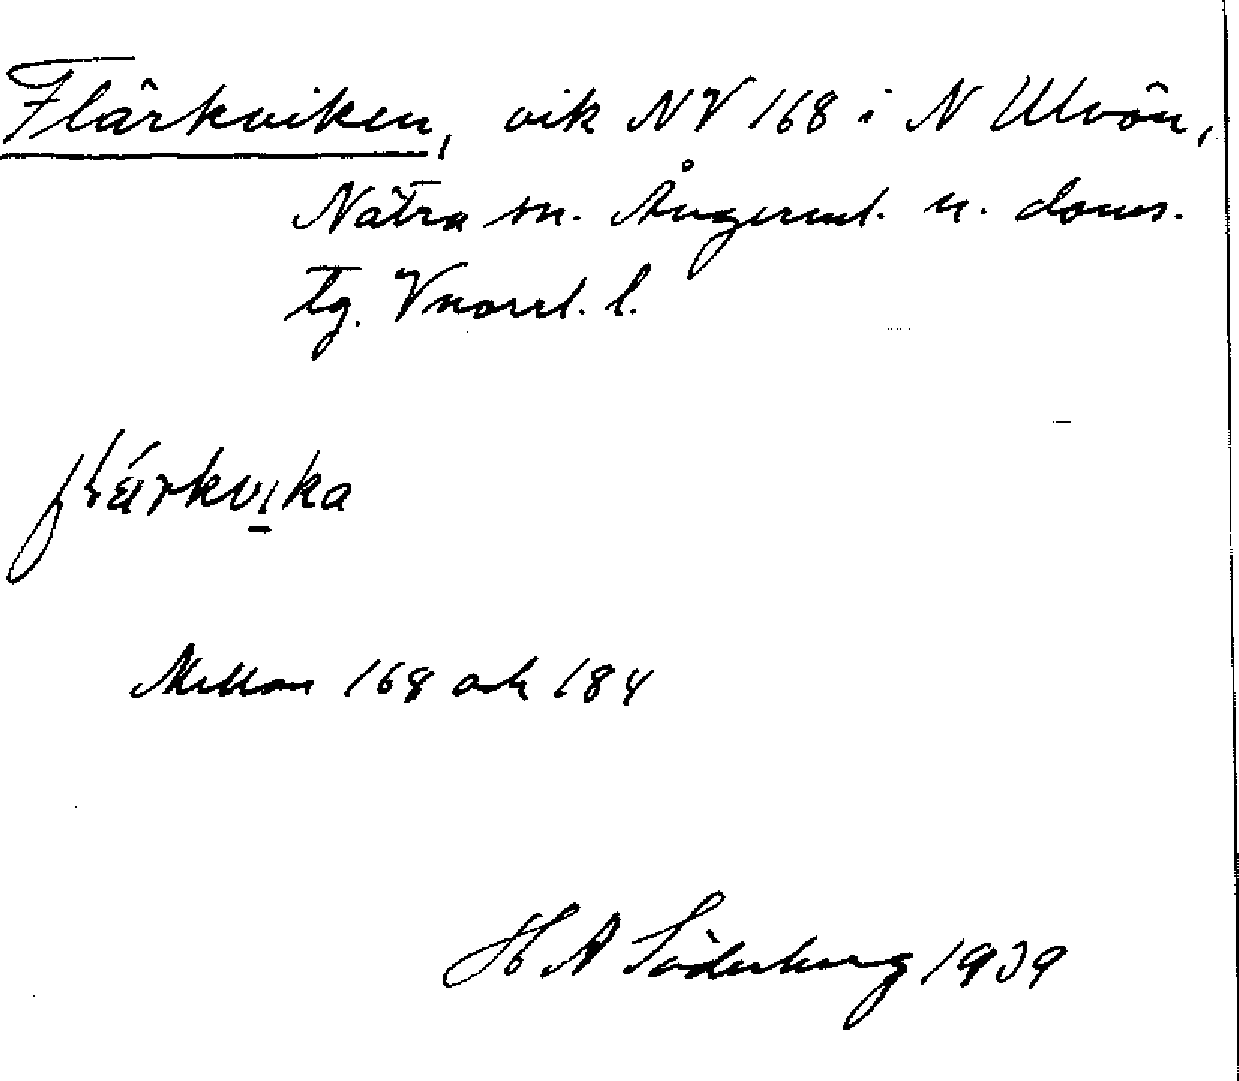 Flärkviken, vik NV 168 i N Ulvön,
Nätra sn. Ångerml. n. doms.
tg. Vnorrl. l.
flärkvika
Mellan 168 och 184
H A Söderberg 1939